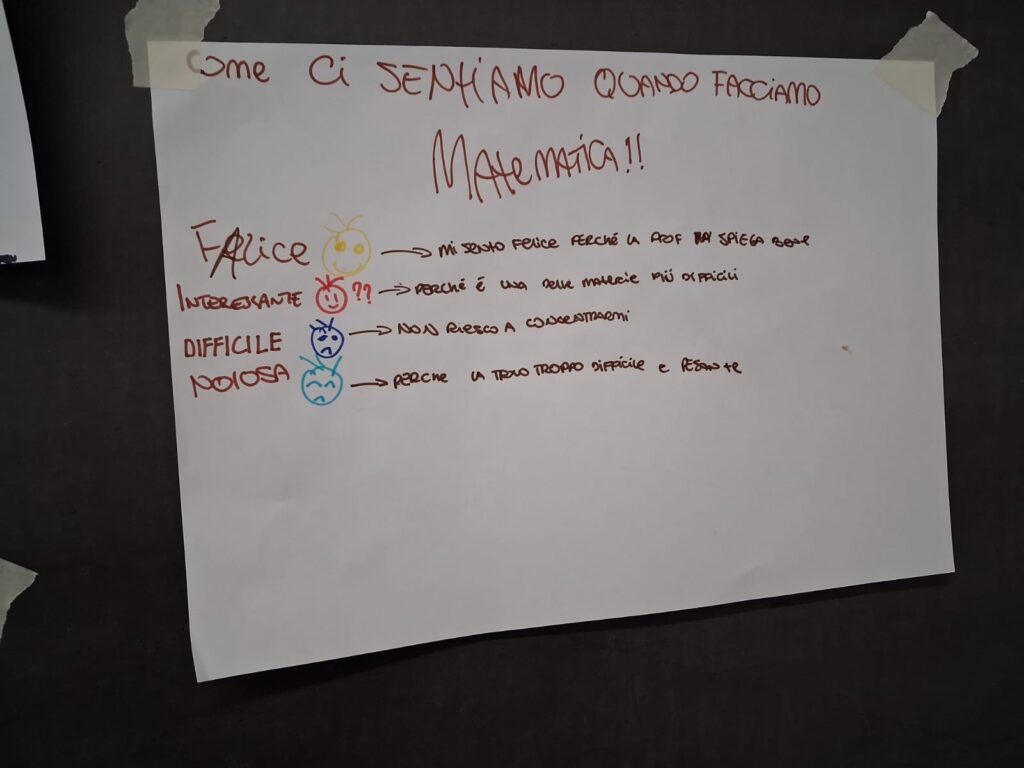 Come Ci SENTiAMO QUANDO FACCiAMO
MATeMATiCA!!
FElice → Mi SENTO FELICE PERCHÉ LA PROF SPIEGA BENE
INTERESSANTE ?? → PERCHÉ É UNA DELLE MATERIE PIÙ DIFFICILI
DIFFICILE → NON RIESCO A CONCENTRARMI
NOIOSA → PERCHE LA TROVO TROPPO DIFFICILE E PESANTE